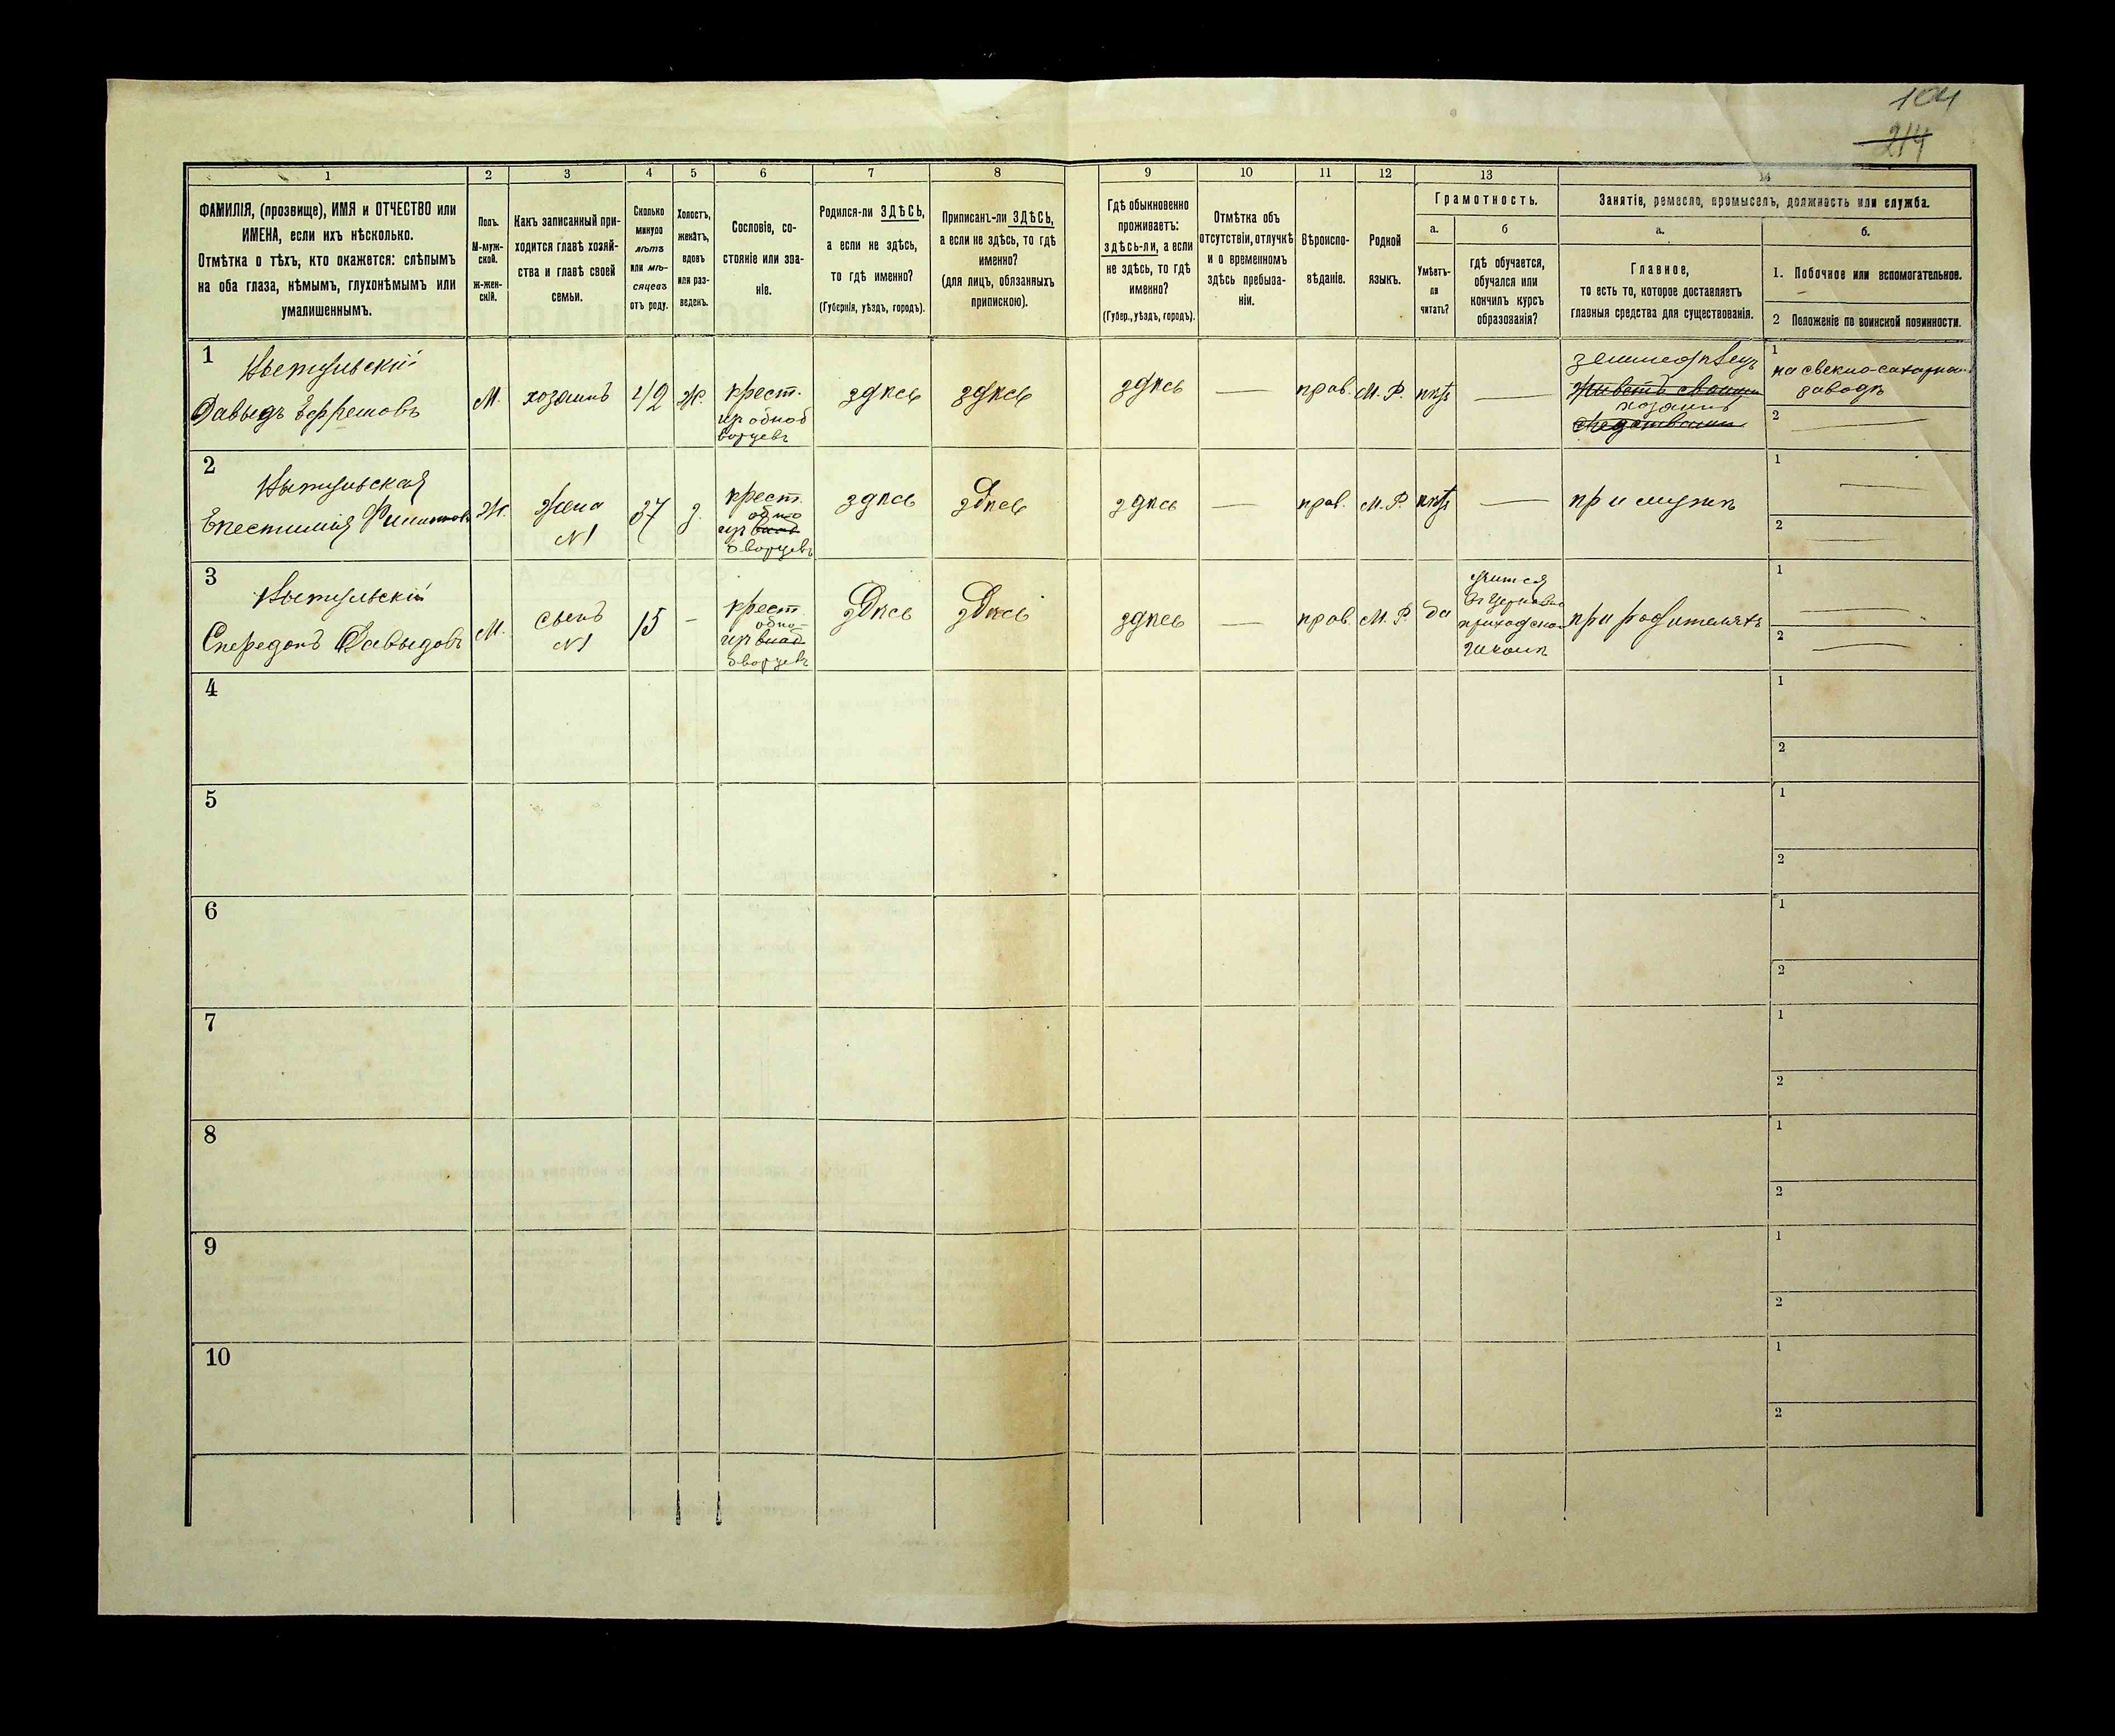 104
214
1
2
3
4
5
6
7
8
9
10
11
12
13
14
ФАМИЛІЯ, (прозвище), ИМЯ и ОТЧЕСТВО или
ИМЕНА, если ихъ нѣсколько.
Отмѣтка о тѣхъ, кто окажется: слѣпымъ
на оба глаза, нѣмымъ, глухонѣмымъ или
умалишеннымъ.
Полъ.
М-муж-
ской.
Ж-жен-
скій.
Какъ записанный при-
ходится главѣ хозяй-
ства и главѣ своей
семьи.
Сколько
минуло
лѣтъ
или мѣ-
сяцевъ
отъ роду.
Холостъ,
женатъ,
вдовъ
или раз-
веденъ.
Сословіе, со-
стояніе или зва-
ніе.
Родился-ли ЗДѢСЬ,
а если не здѣсь,
то гдѣ именно?
(Губернія, уѣздъ, городъ).
Приписанъ-ли ЗДѢСЬ,
а если не здѣсь, то гдѣ
именно?
(для лицъ, обязанныхъ
припискою).
Гдѣ обыкновенно
проживаетъ:
здѣсь-ли, а если
не здѣсь, то гдѣ
именно?
(Губер., уѣздъ, городъ).
Отмѣтка объ
отсутствіи, отлучкѣ
и о временномъ
здѣсь пребыва-
ніи.
Вѣроиспо-
вѣданіе.
Родной
языкъ.
Грамотность.
а.
б
Умѣетъ-
ли
читать?
гдѣ обучается,
обучался или
кончилъ курсъ
образованія?
Занятіе, ремесло, промыселъ, должность или служба.
а.
б.
Главное,
то есть то, которое доставляетъ
главныя средства для существованія.
1. Побочное или вспомогательное.
2 Положеніе по воинской повинности.
1
Давыдъ Ефремовъ
М.
хозяинъ
42
Ж.
крест.
из однод
ворцевъ
здѣсь
здѣсь
здѣсь
—
прав.
М. Р.
нѣтъ
—
земледѣлецъ
живетъ своими
хозяинъ
средствами
1
на свекло-сахарно
заводѣ
2
—
2
Ж.
жена
№1
37
з.
крест.
одно
из
дворцевъ
здѣсь
здѣсь
здѣсь
—
прав.
М. Р.
нѣтъ
—
при мужѣ
1
—
2
—
3
Спередонъ Давыдовъ
М.
сынъ
№1
15
-
крест.
одно-
из
дворцевъ
здѣсь
здѣсь
здѣсь
—
прав.
М. Р.
да
учится
въ церковно
приходской
школѣ
при родителяхъ
1
—
2
—
4
1
2
5
1
2
6
1
2
7
1
2
8
1
2
9
1
2
10
1
2